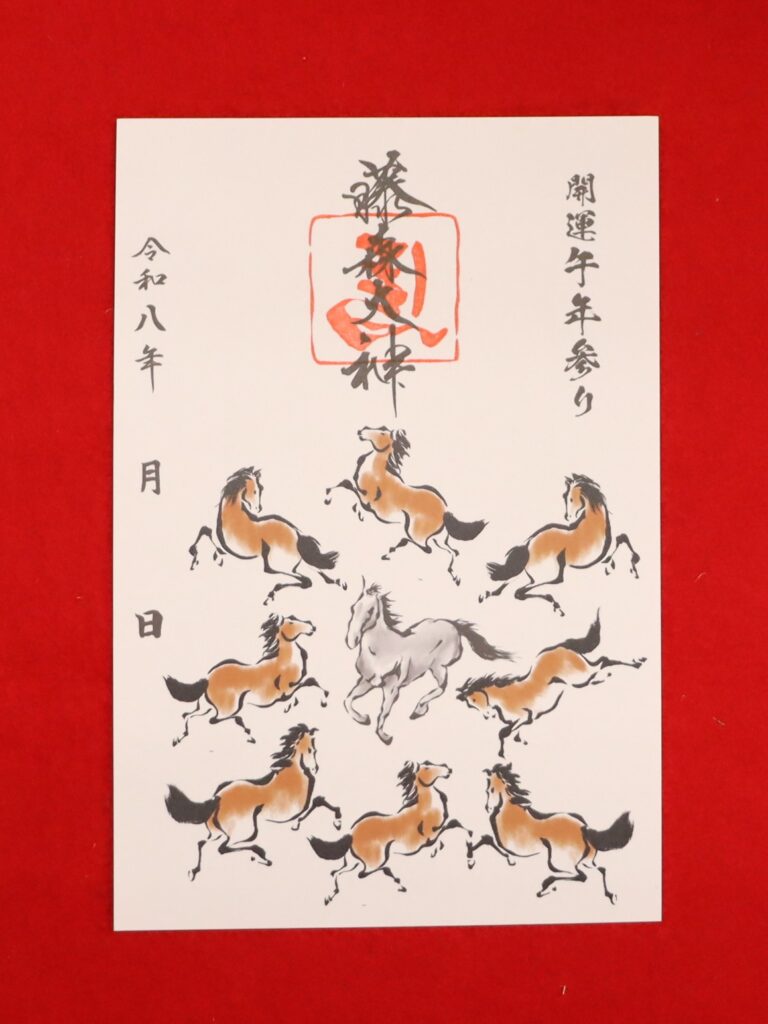 開運午年参り
藤森大神
令和八年　月　日